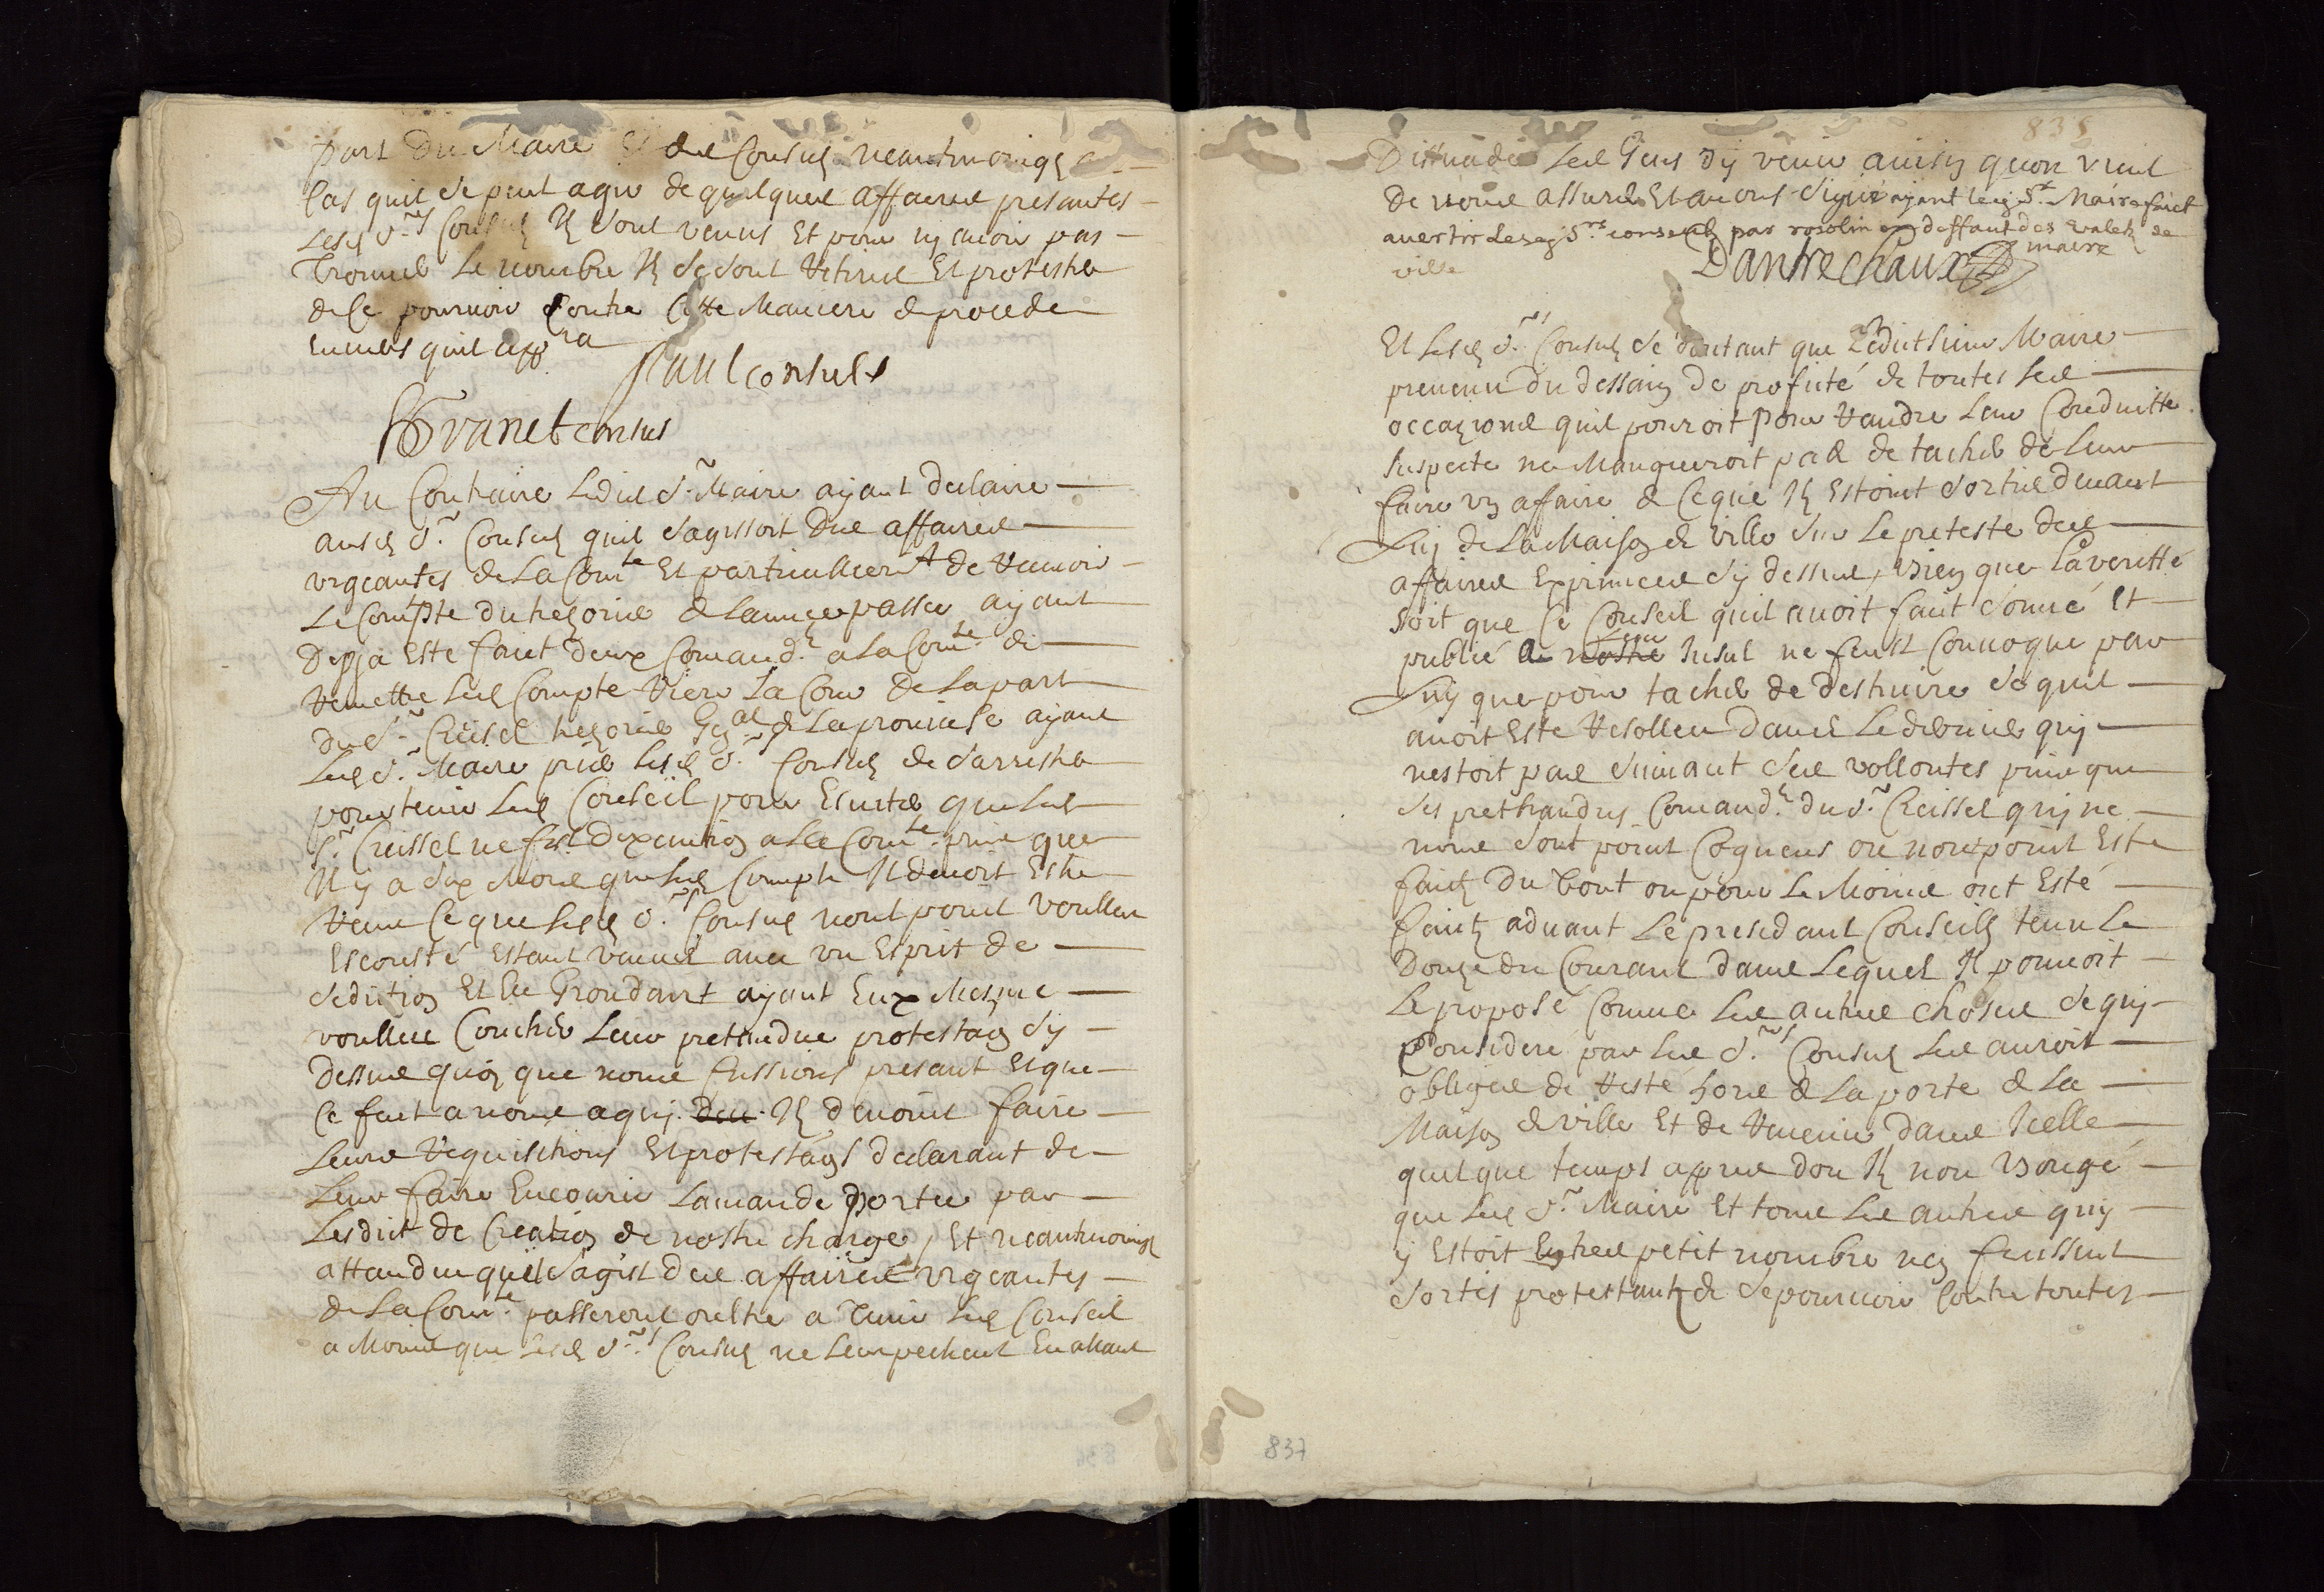 part du Maire & des Consulz neantmoingz
Cas quil se peut agir de quelques affaires presantes
Lesd srs Consulz Ilz sont venus Et pour ny avoir pas
trouvés Le nombre Ilz se sont retirés Et protester
de se pourvoir Contre Cette Maniere de proceder
ainsis quil app.ra
paul consuls
Granet consus
Au Contraire Ledict sr Maire ayant declaire
ausd srs Consulz quil sagissoit des affaires
urgeantes de La Com.te Et particullierem.t de recevoir
Le Compte du trezorier de lannee passee ayant
Depja Este faict deux Comand.t a la Com.te de
remettre led Compte riere La Cour De la part
du sr Creissel trezorier Gnal de La provinse ayant
Led sr Maire prié lesd srs Consulz de sarrester
pour tenir led Conseil pour Esviter que led
sr Creissel ne fist dexecution a la Com.te puis que
Il y a dix Mois que led Compte Il devoit Estre
rendu Ce que lesd srs Consulz nont point voulleu
Escousté Estant venus avec un Esprit de
sedition Et En Grondant ayant Eux Mesme
voulleu Coucher Leur prettendue protestaon sy
dessus quoy que nous fussions presant Et que
Ce feut a nous a quy Ilz devoint faire
Leurs requisitions Et protestaons declarant de
Leur faire Encourir Lamande portee par
Lesdict de Creation de nostre charge, Et neantmoingz
attandeu quil sagist des affaires urgeantes
de La Com.te passeront oultre a tenir led Conseil
a Moins que lesd srs Consulz ne Lempechent En allant
835
Dissuader les Gens dy venir ainsin quon vient
De nous assurer Et avons signé ayant led Sr Maire faict
avertir Lesd Srs conseulz par rosolin en deffaut des valetz de
ville
Dantrechaux
maire
Et Lesd srs Consulz se doutant que Ledict sieur Maire
prevenu du dessain de proficté de toutes les
occazions quil pourroit pour randre Leur Conduitte
suspecte ne Manqueroit pas de tacher de Leur
faire un afaire de Ceque Ilz Estoint sortis devant
Luy de La Maison de ville sur Le preteste des
affaires Exprimees sy dessus, bien que La veritté
soit que Ce Conseil quil avoit fait sonné Et
publié a nostre Leur Insul ne feust Convoque par
Luy que pour tacher de destruire Se quil
avoit Este resolleu dans Le dernier quy
nestoit pas suivant ses vollontes puis que
ses prethandus Comand.t du sr Creissel quy ne
nous sont point Cogneus ou nont point Este
faictz du tout ou pour Le Moins ont Esté
faictz advant Le presedant Conseilz tenu Le
Douze du Courant dans Lequel Il pouvoit
Le proposé Comme Les autres choses Se quy
Considere par les srs Consulz Les auroit
obligees de resté hors de La porte de La
Maison de ville Et de revenir dans Icelle
quelque temps appres dou Ilz non bougé
que Led sr Maire Et tous Les autres quy
y Estoit En tres petit nombre nen feussent
sortis protestantz de se pourvoir Contre toutes
837